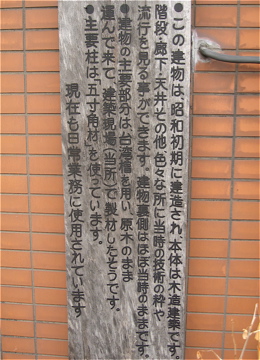 ●この建物は、昭和初期に建造され、本体は木造建築です。
階段・廊下・天井その他色々な所に当時の技術の粋や
流行を見る事ができます。建物裏側はほぼ当時のままです。
●建物の主要部分は、台湾檜を用い、原木のまま
運んで来て、建築現場(当所)で製材したそうです。
●主要柱は「五寸角材」を使っています。
現在も日常業務に使用されています